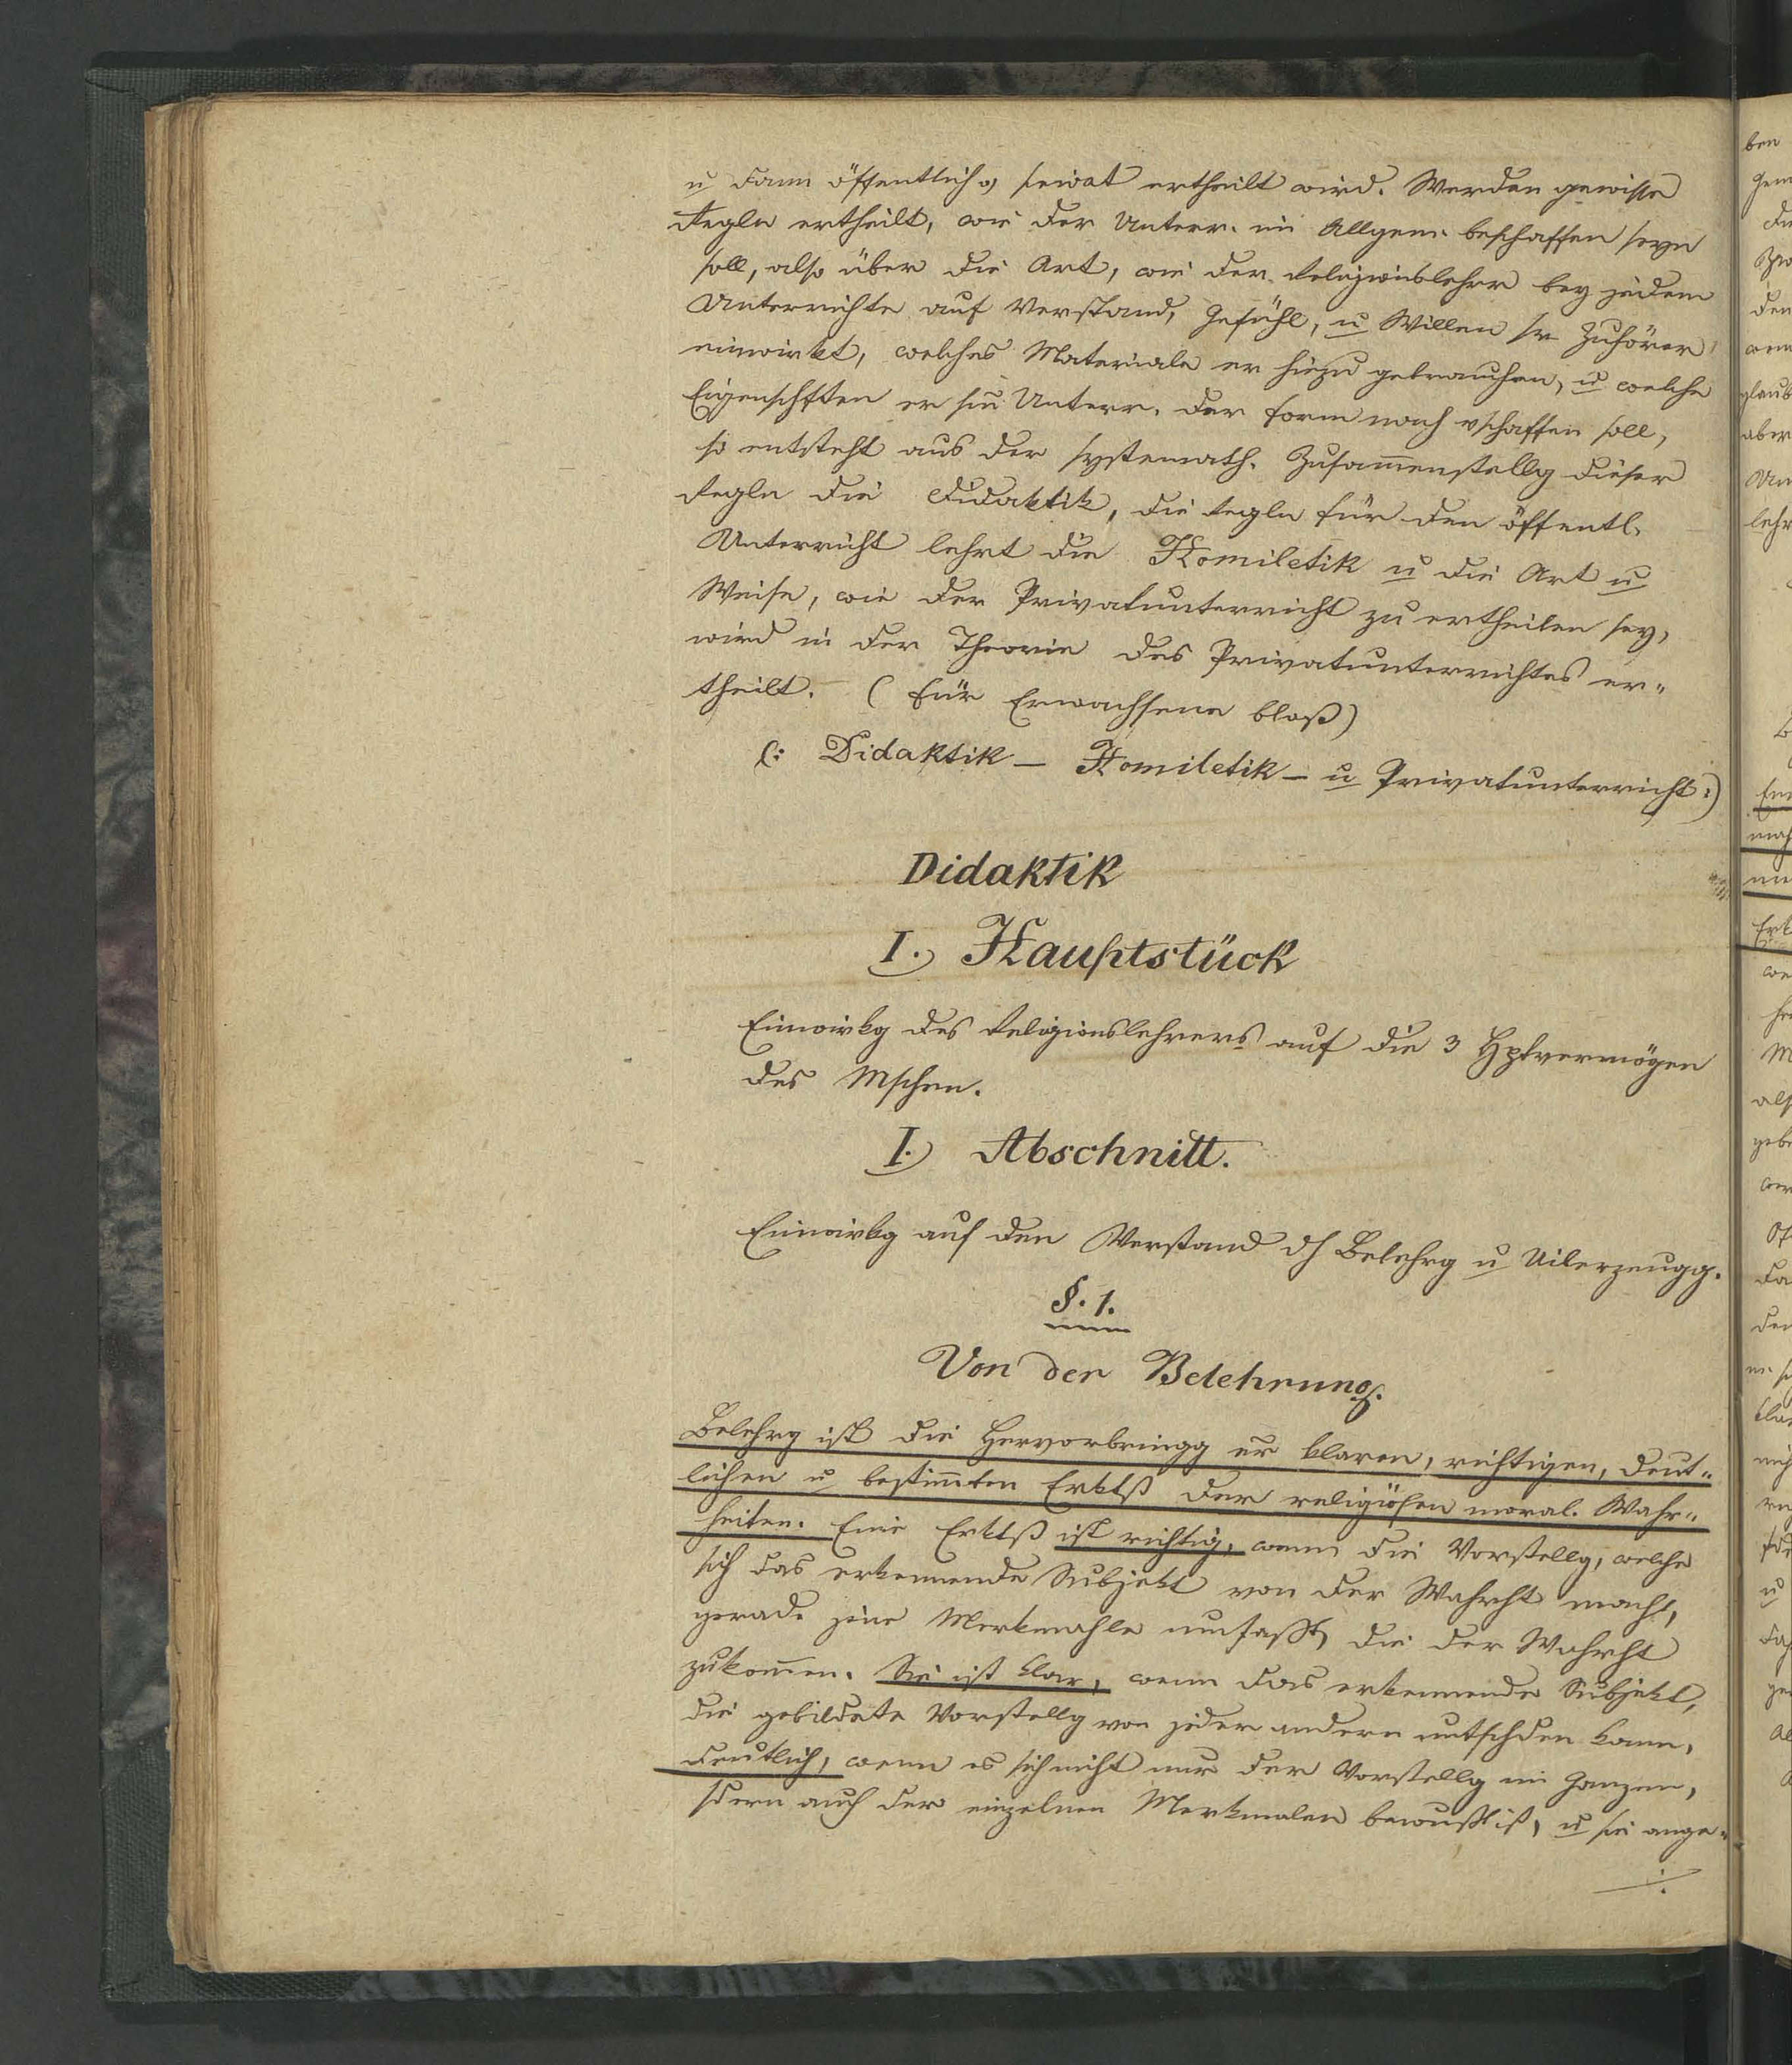 u dann öffentlich o privat ertheilt wird. Werden gewisse
Regln ertheilt, wie der Unterr. im Allgem. beschaffen seyn
soll, also über die Art, wie der Religionslehrer bey jedem
Unterrichte auf Verstand, Gefühl, u Willen sr Zuhörer
einwirkt, welches Materiale er hiezu gebrauchen, u welche
Eigenschften er sm Unterr. der Form nach vschaffen soll,
so entsteht aus der systemath. Zusam̅enstellg dieser
Regln die Didaktik, die Regln für den öffentl.
Unterricht lehrt die Homiletik u die Art u
Weise, wie der Privatunterricht zu ertheilen sey,
wird in der Theorie des Privatunterrichtes er-
theilt. (Für Erwachsene bloß)
(: Didaktik – Homiletik – u Privatunterricht :)
Didaktik
I. Hauptstück
Einwirkg des Religionslehrers auf die 3 Hptvermögen
des Mschen.
I. Abschnitt.
Einwirkg auf den Verstand dh Belehrg u Uiberzeugg.
§. 1.
Von der Belehrung.
Belehrg ist die Hervorbringg er klaren, richtigen, deut-
lichen u bestim̅ten Erktß der religiösen moral. Wahr-
heiten. Eine Erktß ist richtig, wenn die Vorstellg, welche
sich das erkennende Subjekt von der Wahrht macht,
gerade jene Merkmahle umfaßt, die der Wahrht
zukom̅en. Sie ist klar, wenn das erkennende Subjekt,
die gebildete Vorstellg von jeder andern untschden kann,
deutlich, wenn es sich nicht nur der Vorstellg im Ganzen,
sdern auch der einzelnen Merkmalen bewußt ist, u sie ange-